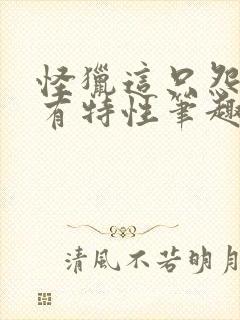 怪獵這只怨
有特性筆趣
清風不若明月